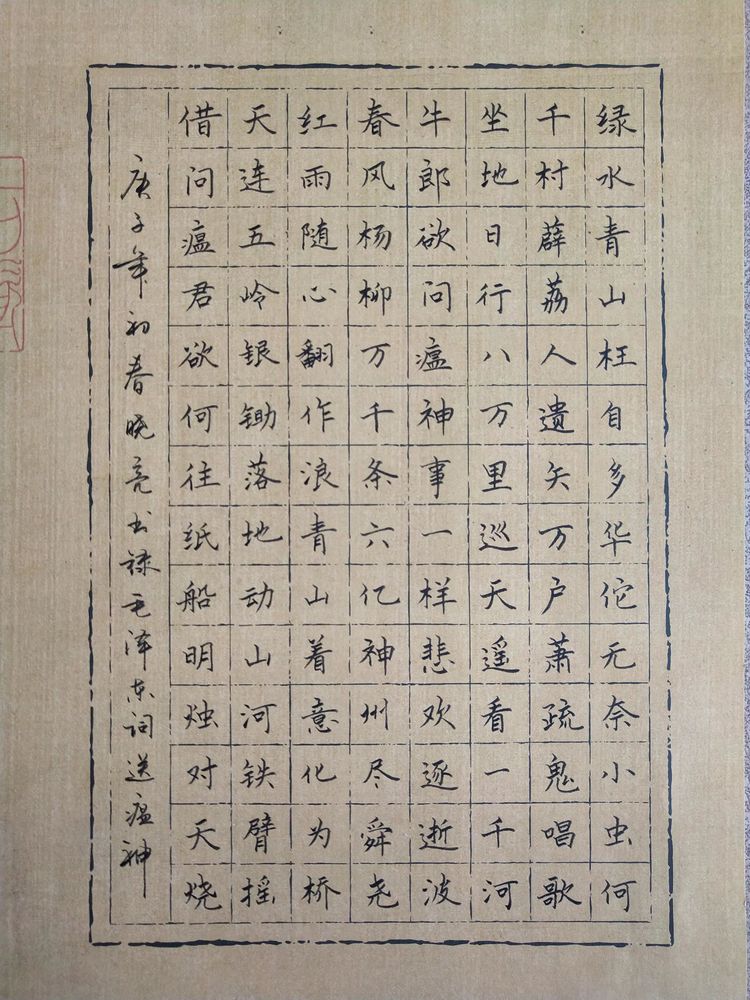 绿水青山枉自多华佗无奈小虫何
千村薜荔人遗矢万户萧疏鬼唱歌
坐地日行八万里巡天遥看一千河
牛郎欲问瘟神事一样悲欢逐逝波
春风杨柳万千条六亿神州尽舜尧
红雨随心翻作浪青山着意化为桥
天连五岭银锄落地动山河铁臂摇
借问瘟君欲何往纸船明烛对天烧
庚子年初春晓亮书録毛泽东词送瘟神